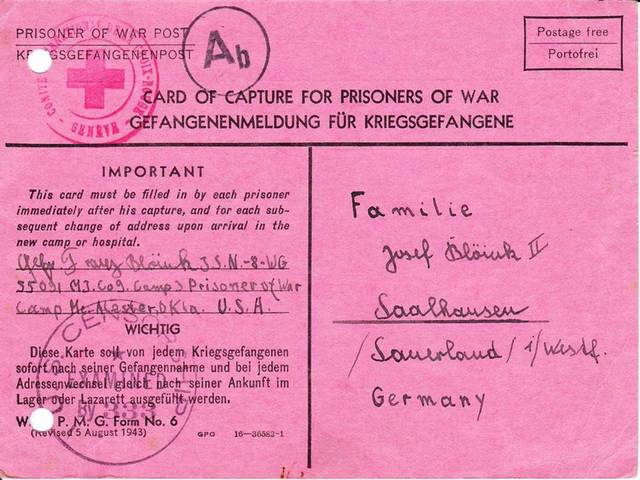 PRISONER OF WAR POST
KRIEGSGEFANGENENPOST
Ab
Postage free
Portofrei
GENÈVE
CARD OF CAPTURE FOR PRISONERS OF WAR
GEFANGENENMELDUNG FÜR KRIEGSGEFANGENE
IMPORTANT
This card must be filled in by each prisoner
immediately after his capture, and for each sub-
sequent change of address upon arrival in the
new camp or hospital.
Franz 3 I.S.N.-8-WG
35091 M3. Co9. Camp 3 Prisoner of War
Camp Mc. Alester Okla. U.S.A.
WICHTIG
Diese Karte soll von jedem Kriegsgefangenen
sofort nach seiner Gefangennahme und bei jedem
Adressenwechsel gleich nach seiner Ankunft im
Lager oder Lazarett ausgefüllt werden.
W. D., P. M. G. Form No. 6
(Revised 5 August 1943)
GPO 16—36582-1
U.S. CENSOR
EXAMINED
BY 333
Familie
Josef II
Saalhausen
/Sauerland/ i/Westf.
Germany